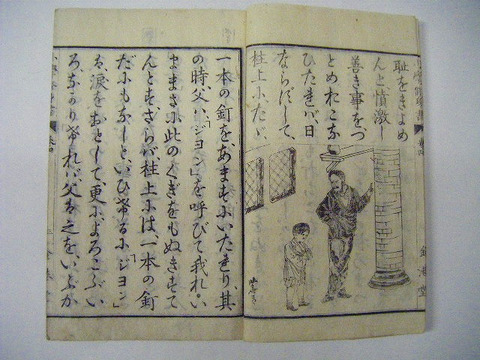 恥をきよめ
んと、憤激し
善き事をつ
とめおこな
ひたれバ、日
ならずして、
柱上に、たゞ
一本の釘を、あますにいたれり、其
の時父ハ、「ジヨン」を呼びて我れ、い
ままさに此のくぎをもぬきすて
んとす、さらバ、柱上にハ、一本の釘
だにもなしと、いひけるに「ジヨン」
ハ、涙をおとして、更に、よろこぶい
ろなかりけれバ、父ハ之を、いぶか